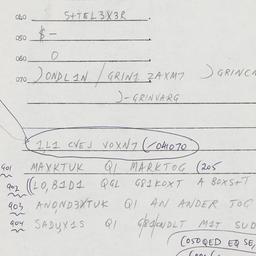 040 S+TEL3X3R.
050 $-
060 O
070 )ONDL1N / GRIN1 ZAXM7 )GRINCN
)-GRINVARG
1L1 CNEJ VOXN7 (/04070
901 MAXKTUK Q1 MARKTOG (205
902 ((LO,B1D1 QGL G81KOXT A BOXS+T
903 ANOND3XTUK Q1 AN ANDER TOG
904 SADYX1S Q1 NDLT M1T SUD
(050QED EQ SE,